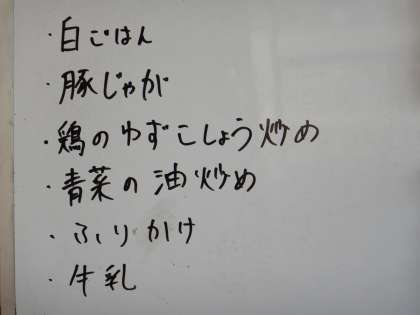 ・白ごはん
・豚じゃが
・鶏のゆずこしょう炒め
・青菜の油炒め
・ふりかけ
・牛乳